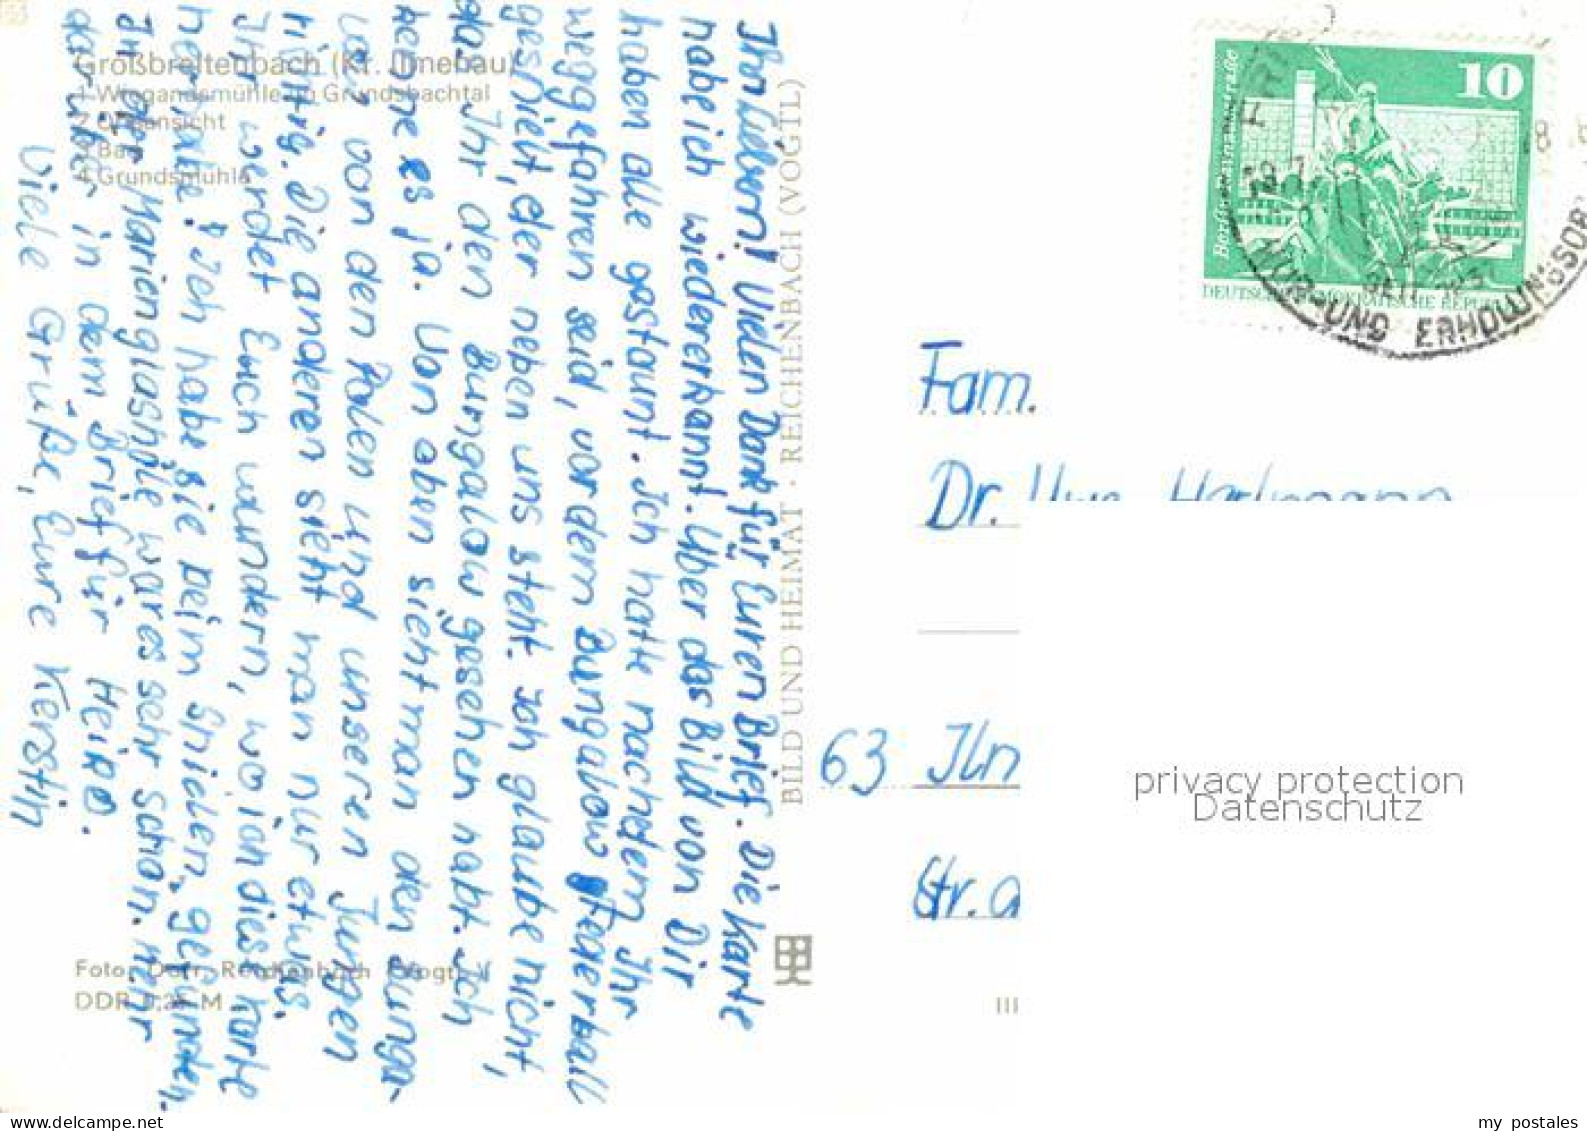 Großbreitenbach (Kr. Ilmenau)
1 Wiegandsmühle im Grundsbachtal
2 Ortsansicht
3 Bad
4 Grundsmühle
Ihr Lieben! Vielen Dank für Euren Brief. Die Karte
habe ich wiedererkannt. Über das Bild von Dir
haben alle gestaunt. Ich hatte nachdem Ihr
weggefahren seid, vor dem Bungalow Federball
gespielt, der neben uns steht. Ich glaube nicht,
das Ihr den Bungalow gesehen habt. Ich
kenne es ja. Von oben sieht man den Bunga-
low von den Polen und unseren Jungen
richtig. Die anderen sieht man nur etwas.
Ihr werdet Euch wundern, wo ich diese Karte
her habe. Ich habe sie beim Spielen gefunden.
In der Marienglashöle war es sehr schön. Mehr
darüber in dem Brief für Heiko.
Viele Grüße, Eure Kerstin
Foto: Darr, Reichenbach (Vogtl.)
DDR 0,25 M
BILD UND HEIMAT · REICHENBACH (VOGTL)
10
DEUTSCHE DEMOKRATISCHE REPUBLIK
UND ERHOLUNGSORT
Fam.
Dr. Uwe
63 Ilm
Str. d
III
privacy protection
Datenschutz
my postales